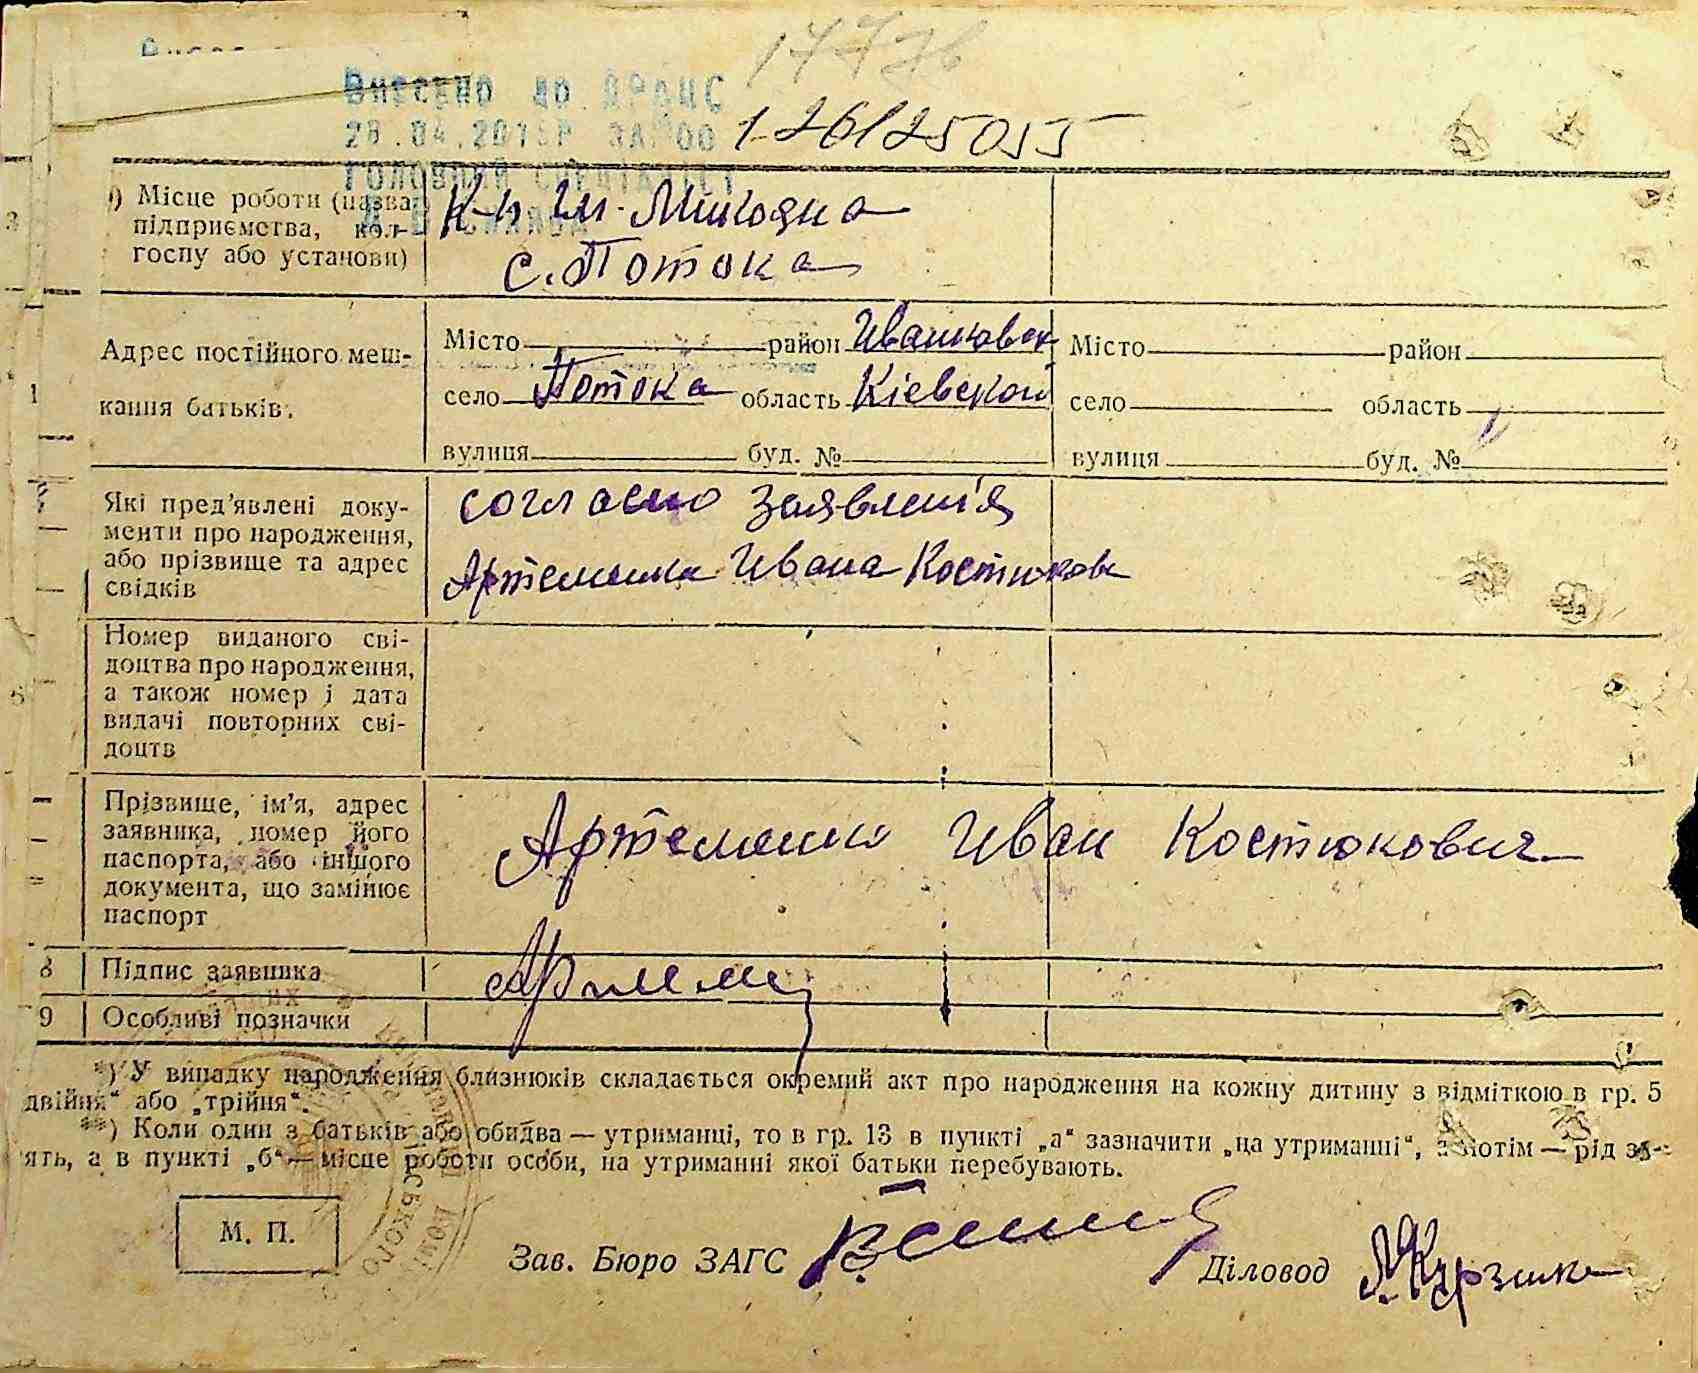 1777в
Внесено до ДРАЦС
28.04.2015Р ЗА №00
1-26125055
ГОЛОВНИЙ СПЕЦІАЛІСТ
) Місце роботи (назва підприємства, кол-
К-п Им. Микояна
госпу або установи)
с. Потока
Адрес постійного меш-
кання батьків.
Місто район Иванковск
село Потока область Кіевской
вулиця буд. №
Місто район
село область
вулиця буд. №
Які пред'явлені доку-
менти про народження,
або прізвище та адрес
свідків
согласно заявленія
Артеменка Ивана Костюкова
Номер виданого сві-
доцтва про народження,
а також номер і дата
видачі повторних сві-
доцтв
Прізвище, ім'я, адрес
заявника, номер його
паспорта, або іншого
документа, що замінює
паспорт
Артеменко Иван Костюкович
8 Підпис заявника
9 Особливі позначки
*) У випадку народження близнюків складається окремий акт про народження на кожну дитину з відміткою в гр. 5
двійня" або „трійня".
**) Коли один з батьків або обидва — утриманці, то в гр. 13 в пункті „а" зазначити „на утриманні", а потім — рід за-
ять, а в пункті „б" — місце роботи особи, на утриманні якої батьки перебувають.
М. П.
Зав. Бюро ЗАГС
Діловод